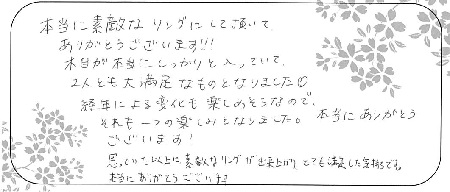 本当に素敵なリングにして頂いて
ありがとうございます!!!
木目が本当にしっかりと入っていて、
2人とも大満足なものとなりました♡
経年による変化も楽しめそうなので、
それも一つの楽しみとなりました。 本当にありがとう
ございます!
思っていた以上に素敵なリングが出来上がり、とても満足した気持ちです。
本当にありがとうございます